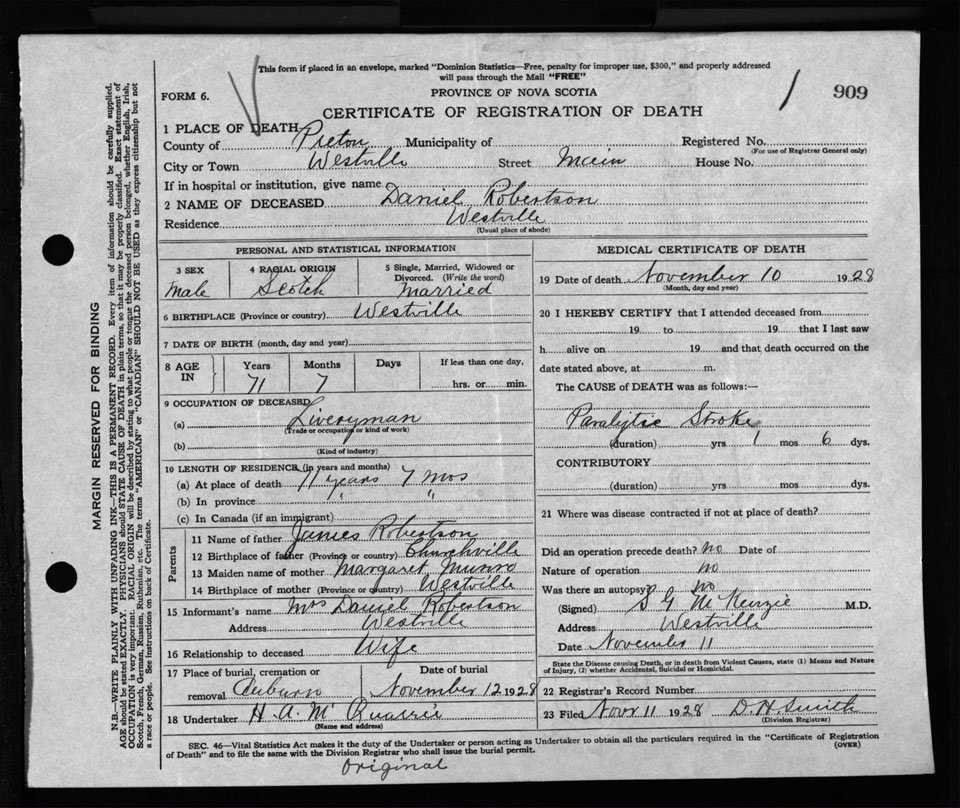 This form if placed in an envelope, marked "Dominion Statistics—Free, penalty for improper use, $300," and properly addressed
will pass through the Mail "FREE"
PROVINCE OF NOVA SCOTIA
909
FORM 6.
CERTIFICATE OF REGISTRATION OF DEATH
1 PLACE OF DEATH
County of Pictou Municipality of Registered No.
(For use of Registrar General only)
City or Town Westville Street Main House No.
If in hospital or institution, give name
2 NAME OF DECEASED Daniel Robertson
Residence Westville
(Usual place of abode)
PERSONAL AND STATISTICAL INFORMATION
3 SEX 4 RACIAL ORIGIN 5 Single, Married, Widowed or Divorced. (Write the word)
Male Scotch Married
6 BIRTHPLACE (Province or country) Westville
7 DATE OF BIRTH (month, day and year)
8 AGE IN Years Months Days If less than one day,
71 7 hrs. or min.
9 OCCUPATION OF DECEASED
(a) Liveryman
(Trade or occupation or kind of work)
(b)
(Kind of industry)
10 LENGTH OF RESIDENCE (in years and months)
(a) At place of death 71 years 7 mos
(b) In province " "
(c) In Canada (if an immigrant)
Parents
11 Name of father James Robertson
12 Birthplace of father (Province or country) Churchville
13 Maiden name of mother Margaret Munro
14 Birthplace of mother (Province or country) Westville
15 Informant's name Mrs Daniel Robertson
Address Westville
16 Relationship to deceased Wife
17 Place of burial, cremation or Date of burial
removal Auburn November 12 1928
18 Undertaker H. A. Mc Quarrie
(Name and address)
MEDICAL CERTIFICATE OF DEATH
19 Date of death November 10 1928
(Month, day and year)
20 I HEREBY CERTIFY that I attended deceased from
19 to 19 that I last saw
h alive on 19 and that death occurred on the
date stated above, at m.
The CAUSE of DEATH was as follows:—
Paralytic Stroke
(duration) yrs 1 mos 6 dys.
CONTRIBUTORY
(duration) yrs mos dys.
21 Where was disease contracted if not at place of death?
Did an operation precede death? no Date of
Nature of operation no
Was there an autopsy? no
(Signed) S G McKenzie M.D.
Address Westville
Date November 11
State the Disease causing Death, or in death from Violent Causes, state (1) Means and Nature
of Injury, (2) whether Accidental, Suicidal or Homicidal.
22 Registrar's Record Number
23 Filed Novr 11 1928 D. H. Smith
(Division Registrar)
SEC. 46—Vital Statistics Act makes it the duty of the Undertaker or person acting as Undertaker to obtain all the particulars required in the "Certificate of Registration
of Death" and to file the same with the Division Registrar who shall issue the burial permit.
(OVER)
Original
MARGIN RESERVED FOR BINDING
N.B.—WRITE PLAINLY WITH UNFADING INK—THIS IS A PERMANENT RECORD. Every item of information should be carefully supplied.
AGE should be stated EXACTLY. PHYSICIANS should STATE CAUSE OF DEATH in plain terms, so that it may be properly classified. Exact statement of
OCCUPATION is very important. RACIAL ORIGIN will be described by stating to what people or tongue the deceased person belonged, whether English, Irish,
Scotch, French, German, Russian, Ruthenian, etc. The terms "AMERICAN" or "CANADIAN" SHOULD NOT BE USED as they express citizenship but not
a race or people. See instructions on back of Certificate.